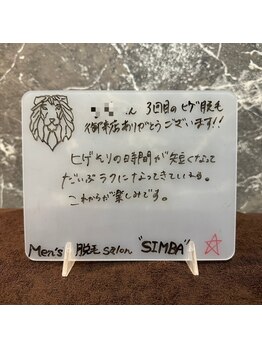 ん 3回目のヒゲ脱毛
御来店ありがとうございます!!
ヒゲそりの時間が短くなって
だいぶラクになってきている。
これからが楽しみです。
Men's 脱毛 salon "SIMBA"